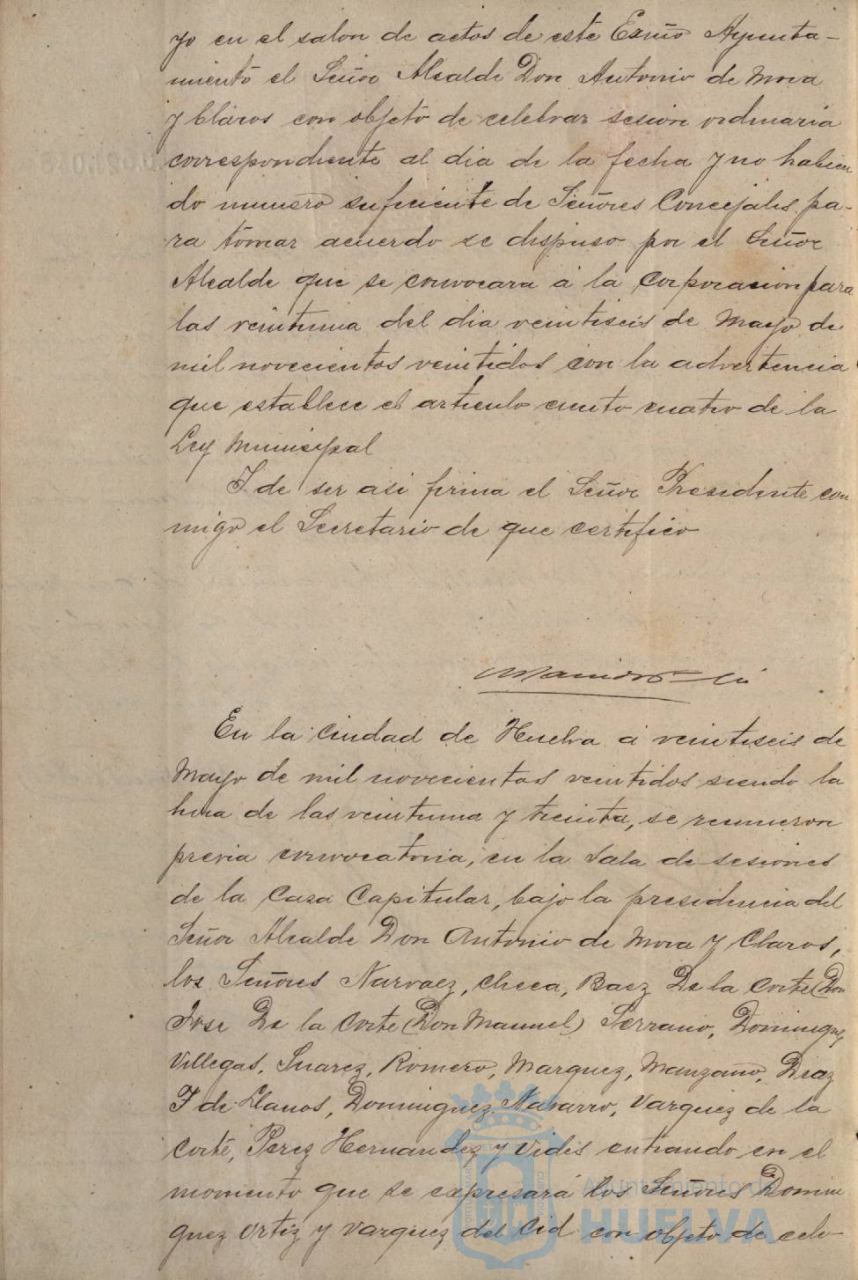 yo en el salon de actos de este Exmo Ayunta-
miento el Señor Alcalde Don Antonio de Mora
y Claros con objeto de celebrar sesion ordinaria
correspondiente al dia de la fecha y no habien
do numero suficiente de Señores Concejales pa-
ra tomar acuerdo se dispuso por el Señor
Alcalde que se convocara á la Corporacion para
las veintiuna del dia veintiseis de Mayo de
mil novecientos veintidos con la advertencia
que establece el articulo ciento cuatro de la
Ley Municipal
Y de ser asi firma el Señor Presidente con
migo el Secretario de que certifico
En la Ciudad de Huelva á veintiseis de
Mayo de mil novecientos veintidos siendo la
hora de las veintiuna y treinta, se reunieron
previa convocatoria, en la Sala de sesiones
de la Casa Capitular, bajo la presidencia del
Señor Alcalde Don Antonio de Mora y Claros,
los Señores Narvaez, Checa, Baez De la Corte (Don
Jose De la Corte (Don Manuel) Serrano, Dominguez
Villegas, Suarez, Romero, Marquez, Manzano, Diaz
Y de Llanos, Dominguez Navarro, Vazquez de la
Corte, Perez Hernandez y Vides entrando en el
momento que se expresará los Señores Domin
guez Ortiz y Vazquez del Cid con objeto de cele
Ayuntamiento de
HUELVA